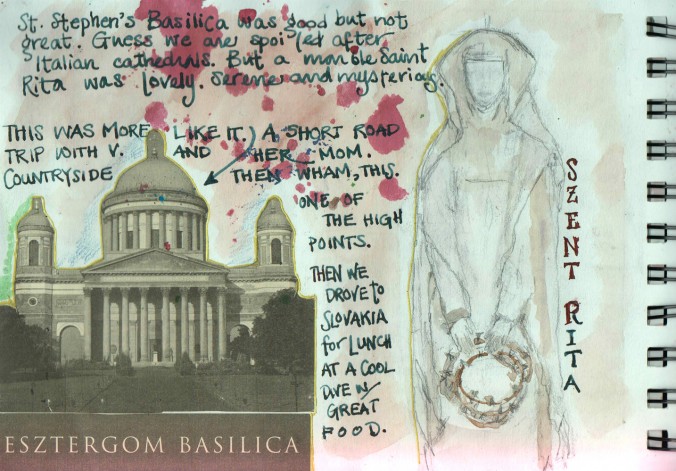 St. Stephen's Basilica was good but not
great. Guess we are spoiled after
Italian cathedrals. But a marble Saint
Rita was lovely. Serene and mysterias.
THIS WAS MORE LIKE IT.) A SHORT ROAD
TRIP WITH V. AND HER MOM.
COUNTRYSIDE THEN WHAM, THIS.
ONE OF
THE HIGH
POINTS.
THEN WE
DROVE TO
SLOVAKIA
for LUNCH
AT A COOL
DIVE W/
GREAT
FOOD.
SZENT RITA
ESZTERGOM BASILICA